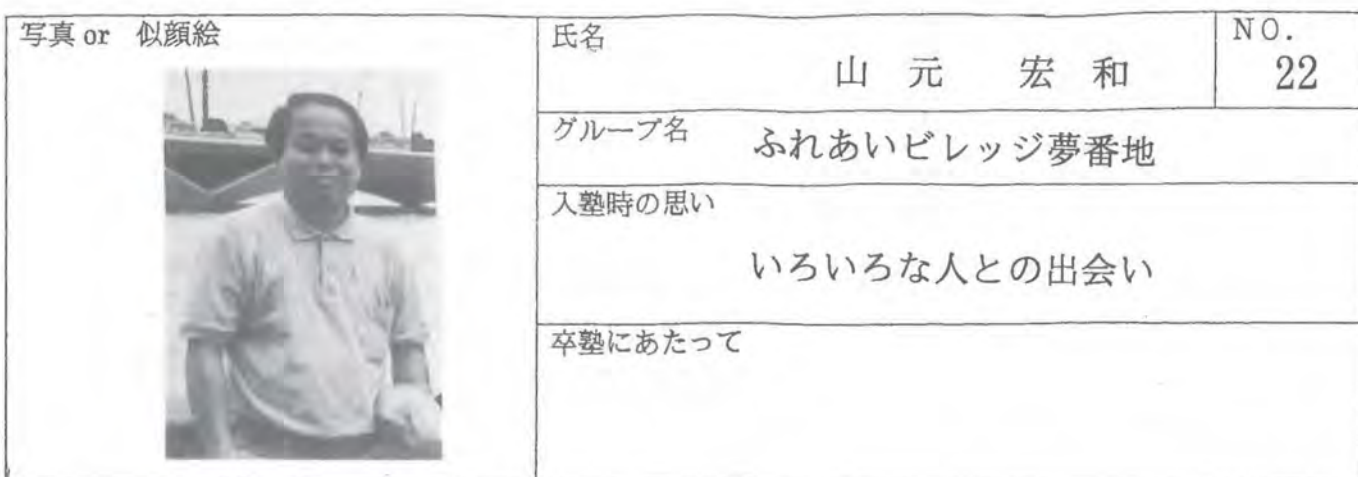 写真 or 似顔絵
氏名
山元 宏和
NO.
22
グループ名
ふれあいビレッジ夢番地
入塾時の思い
いろいろな人との出会い
卒塾にあたって